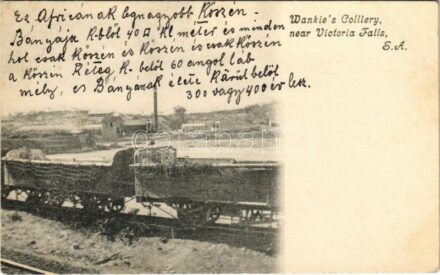 Ez Africanak legnagyobb Kőszén-
Bányája k.blöl 40 □ kl méter és minden
hol csak Kőszén és Kőszén és csak Kőszén
a Kőszén Réteg k. belöl 60 angol lab
mély, es Bányanak élete Körül belöl
300 vagy 400 ev lesz.
Wankie's Colliery,
near Victoria Falls,
S.A.
darabanth